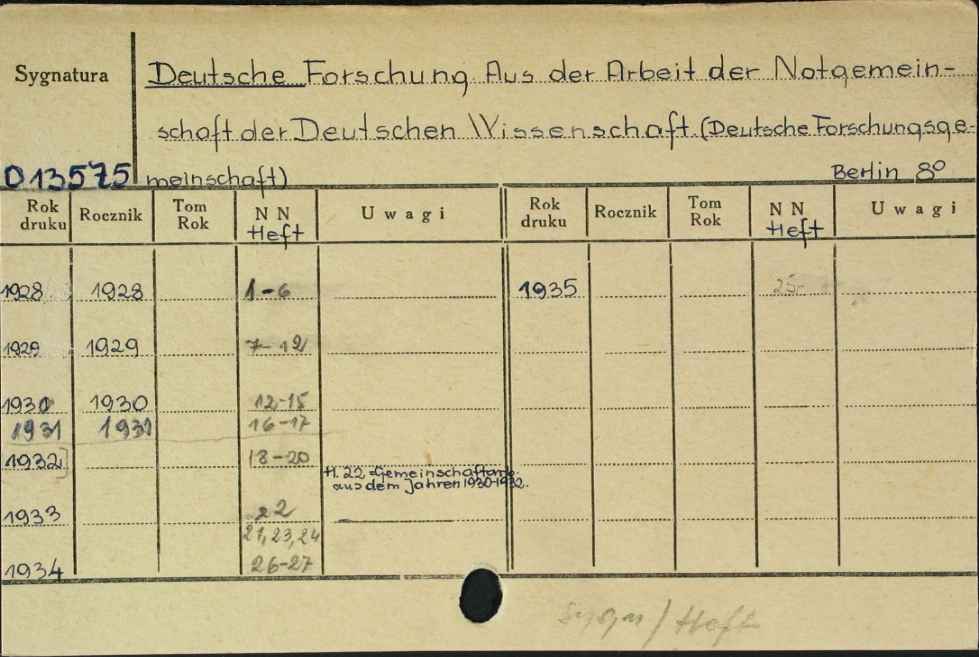 Sygnatura
Deutsche Forschung Aus der Arbeit der Notgemein-
schaft der Deutschen Wissenschaft (Deutsche Forschungsge-
013575 meinschaft) Berlin 8º
Rok druku Rocznik Tom Rok NN Uwagi Rok druku Rocznik Tom Rok NN Uwagi
Heft Heft
1928 1928 1-6 1935 25-
1929 1929 7-12
1930 1930 12-15
1931 1931 16-17
1932] 18-20
H. 22 = Gemeinschaftarb.
aus dem Jahren 1930-1932.
1933 22
21, 23, 24
1934 26-27
Sygn / Heft